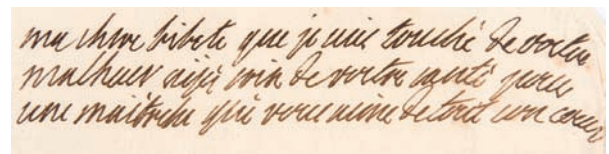 ma chere bibete que je suis touché de vostre
malheur aijé soin de vostre santé pour
une maitresse qui vous aime de tout son coeur